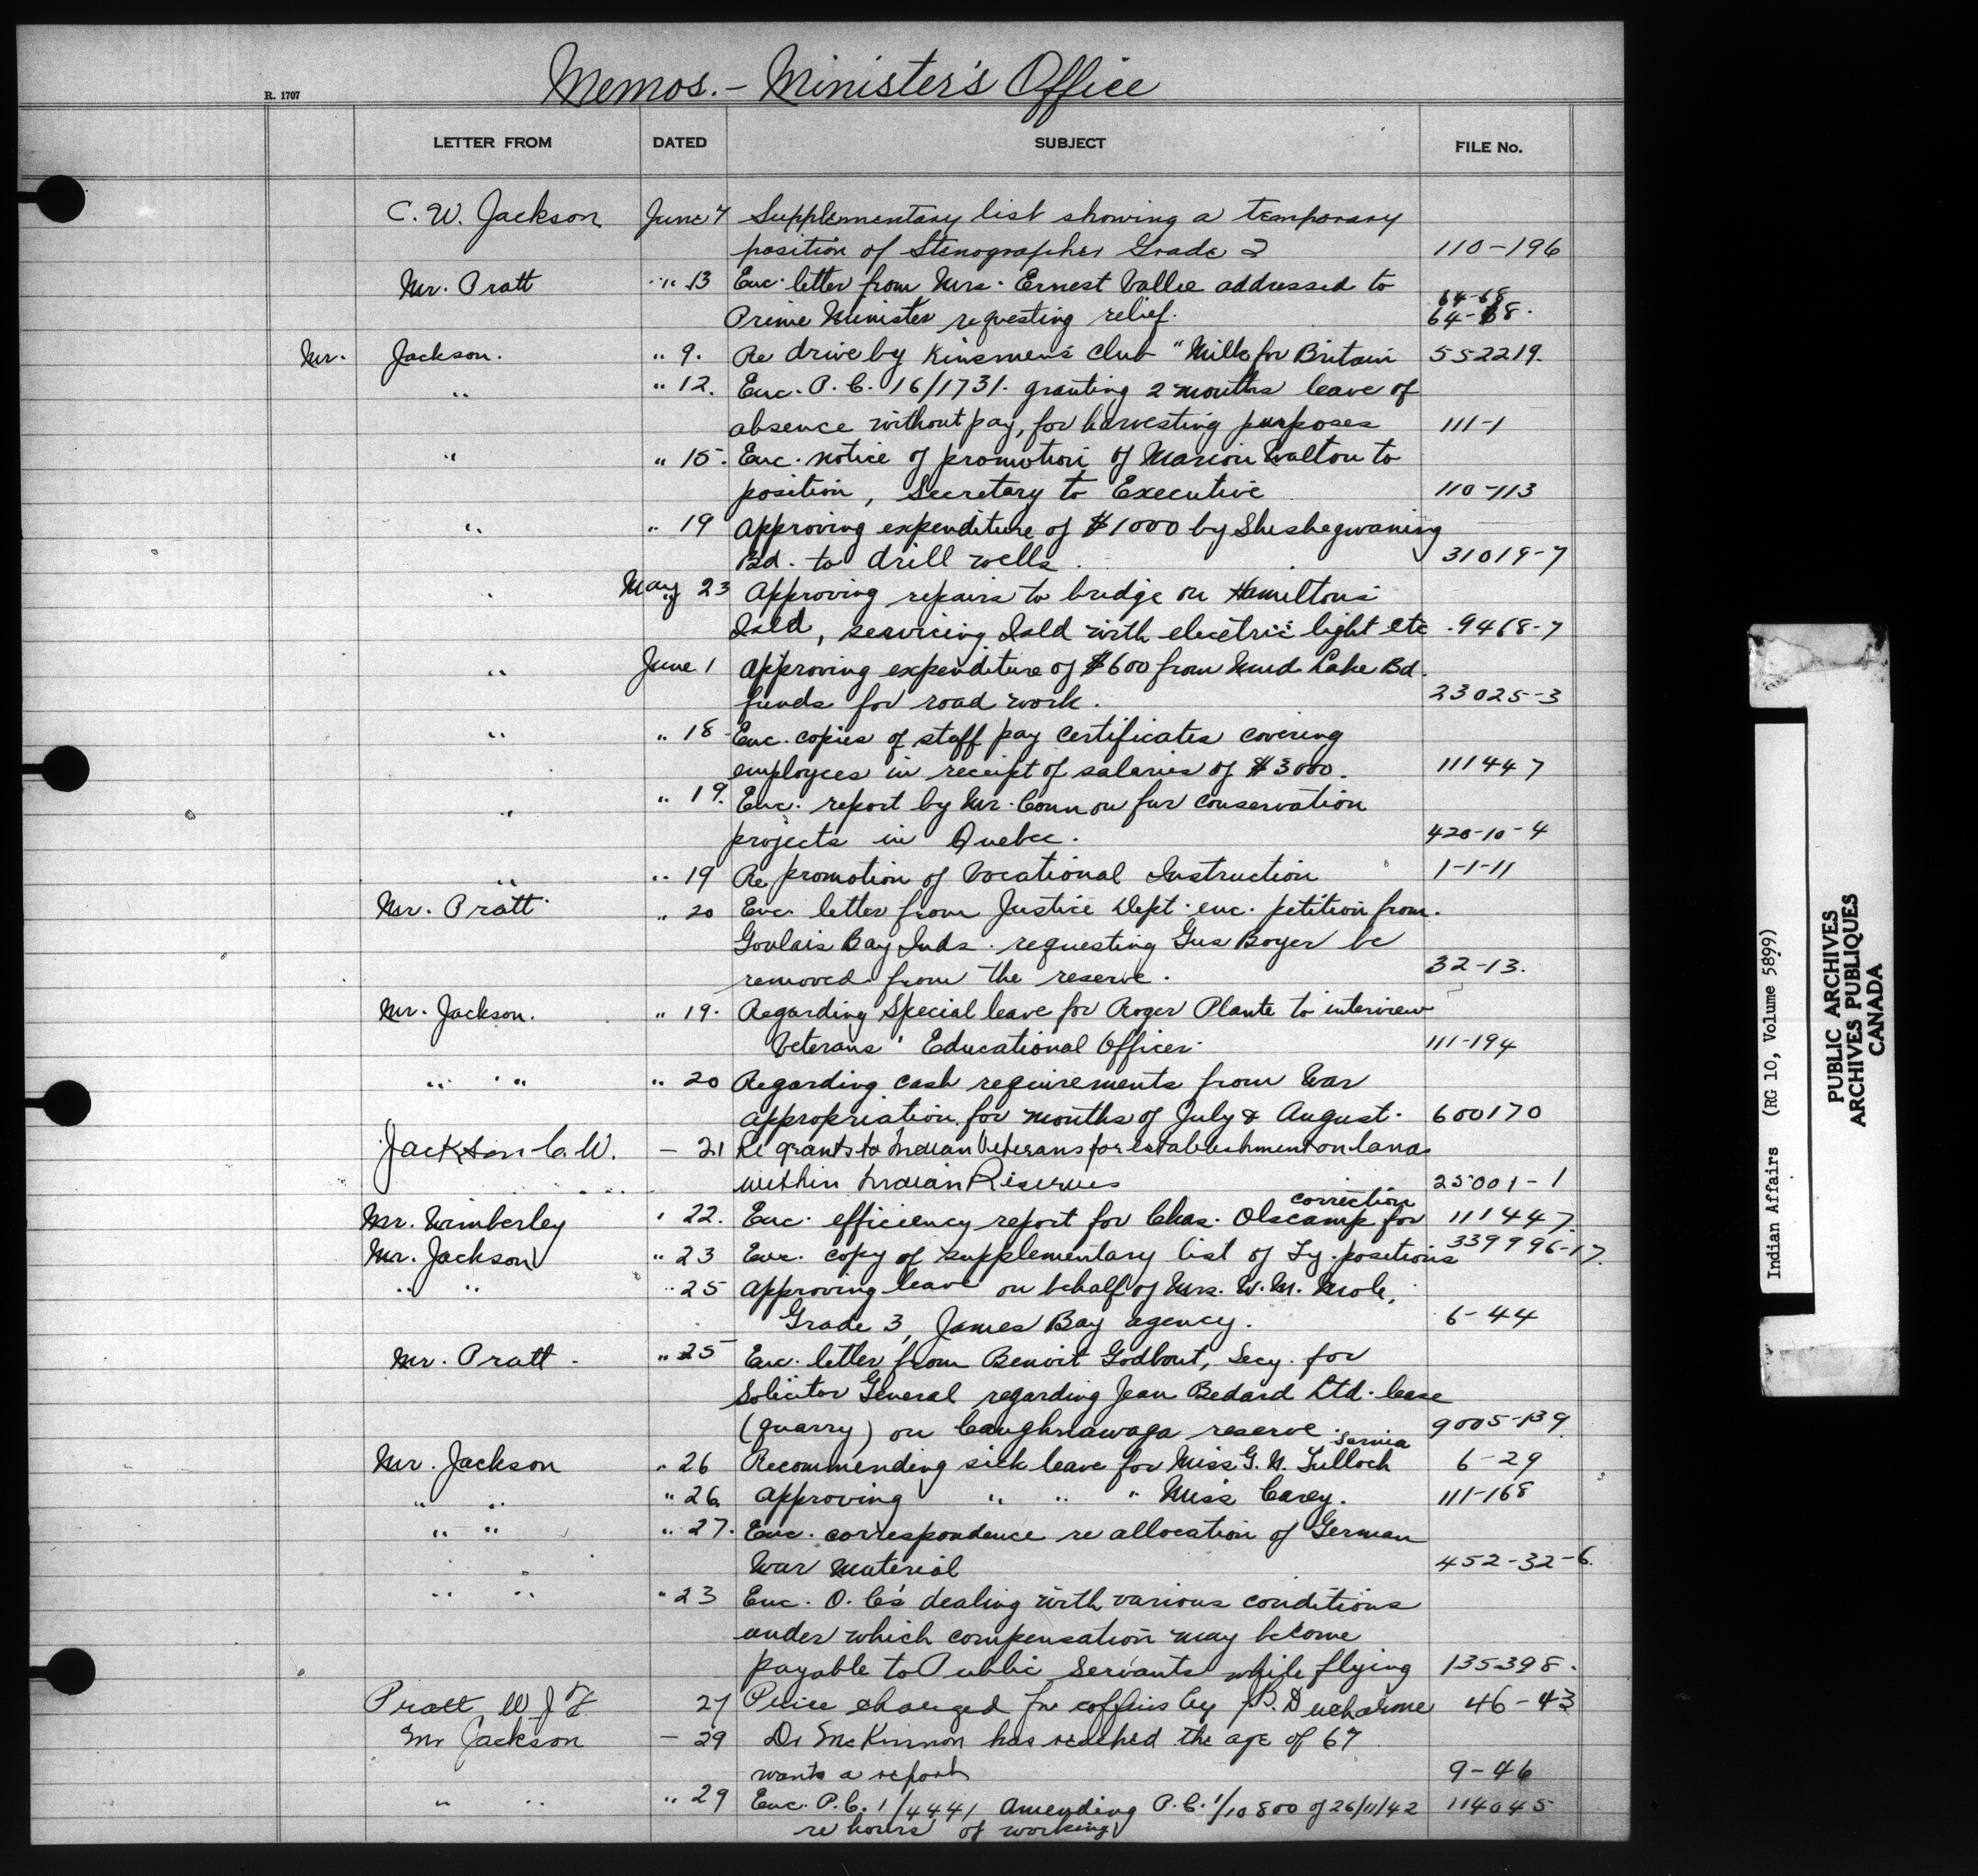 Memos. - Minister's Office
R. 1707
LETTER FROM DATED SUBJECT FILE No.
C. W. Jackson June 7 Supplementary list showing a temporary
position of Stenographer Grade 2 110-196
Mr. Pratt " 13 Enc. letter from Mrs. Ernest Vallee addressed to
64-68
Prime Minister requesting relief. 64-68.
Mr. Jackson. " 9. Re drive by Kinsmen's Club "Milk for Britain 552219.
" " 12. Enc. P. C. 16/1731. granting 2 months leave of
absence without pay, for harvesting purposes 111-1
" " 15. Enc. notice of promotion of Marion Walton to
position, Secretary to Executive 110-113
" " 19 Approving expenditure of $1000 by Sheshegwaning
Bd. to drill wells. 31019-7
" May 23 Approving repairs to bridge on Hamiltons
Isld, servicing Isld with electric light etc. 9468-7
" June 1 Approving expenditure of $600 from Mud Lake Bd.
funds for road work. 23025-3
" " 18 Enc. copies of staff pay certificates covering
employees in receipt of salaries of $3000. 111447
" " 19. Enc. report by Mr. Conn on fur conservation
projects in Quebec. 420-10-4
" " 19 Re promotion of Vocational Instruction 1-1-11
Mr. Pratt " 20 Enc. letter from Justice Dept. enc. petition from
Goulais Bay Inds. requesting Gus Boyer be
removed from the reserve. 32-13.
Mr. Jackson. " 19. Regarding Special leave for Roger Plante to interview
Veterans' Educational Officer. 111-194
" " " 20 Regarding cash requirements from War
appropriation for months of July & August. 600170
Jackson C. W. - 21 Re grants to Indian Veterans for establishment on lands
within Indian Reserves 25001-1
correction
Mr. Wimberley " 22. Enc. efficiency report for Chas. Olscamp for 111447.
Mr. Jackson " 23 Enc. copy of supplementary list of Ty. positions 339996-17.
" " " 25 Approving leave on behalf of Mrs. W. M.
Grade 3, James Bay agency. 6-44
Mr. Pratt. " 25 Enc. letter from Benoit Godbout, Secy. for
Solicitor General regarding Jean Bedard Ltd. lease
(quarry) on Caughnawaga reserve. 9005-139
Sarnia
Mr. Jackson " 26 Recommending sick leave for Miss G. N. Tulloch 6-29
" " " 26. Approving " " " Miss Carey. 111-168
" " " 27. Enc. correspondence re allocation of German
War Material 452-32-6.
" " " 23 Enc. O. C's dealing with various conditions
under which compensation may become
payable to Public Servants while flying 135398.
Pratt W J F. 27 Price charged for coffins by B. Ducharme 46-43
Mr Jackson - 29 Dr McKinnon has reached the age of 67
wants a report 9-46
" " " 29 Enc. P.C. 1/4441 Amending P.C. 1/10800 of 26/11/42 114045
re hours of working
Indian Affairs (RG 10, Volume 5899)
PUBLIC ARCHIVES
ARCHIVES PUBLIQUES
CANADA